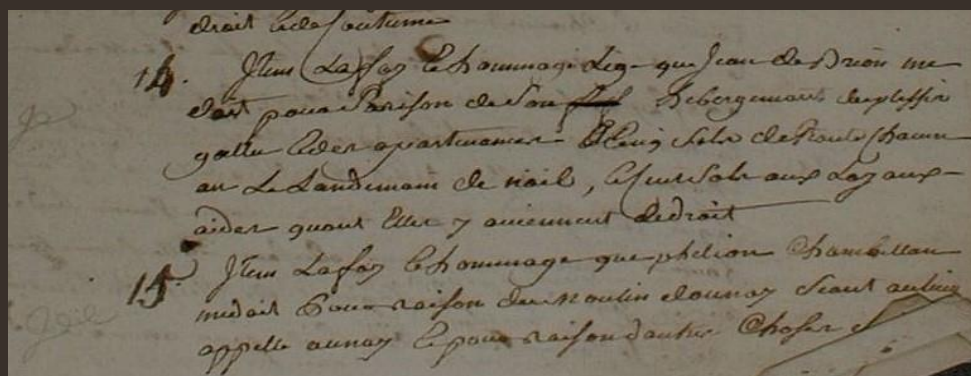 droit & de Coutume
14. Item La foy & hommage Lige que Jean de Brion me
doit pour Raison de son hebergement du plessis
gallu & des apartenances & Cinq Sols de Route Chacun
an Le Landemain de noil, & Cinq Sols aux Loyaux
aides quant Elles y aviennent de droit
15. Item La foy & hommage que philion Chambellan
me doit Pour raison du Moulin daunay Seant au lieu
appellé aunay & pour raison dautres Choses